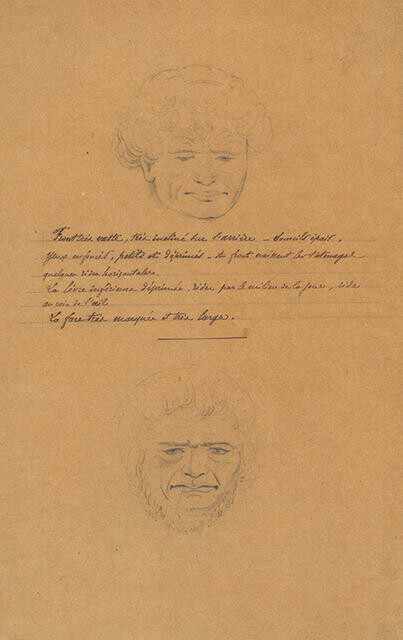 Front très vaste, très incliné sur l'arrière – sourcils épais.
Yeux enfoncés, petits et déprimés – du front naissent les
quelques rides horizontales.
La lèvre inférieure déprimée, rides par le milieu de la joue, ride
au coin de l'œil
La face très marquée et très large.